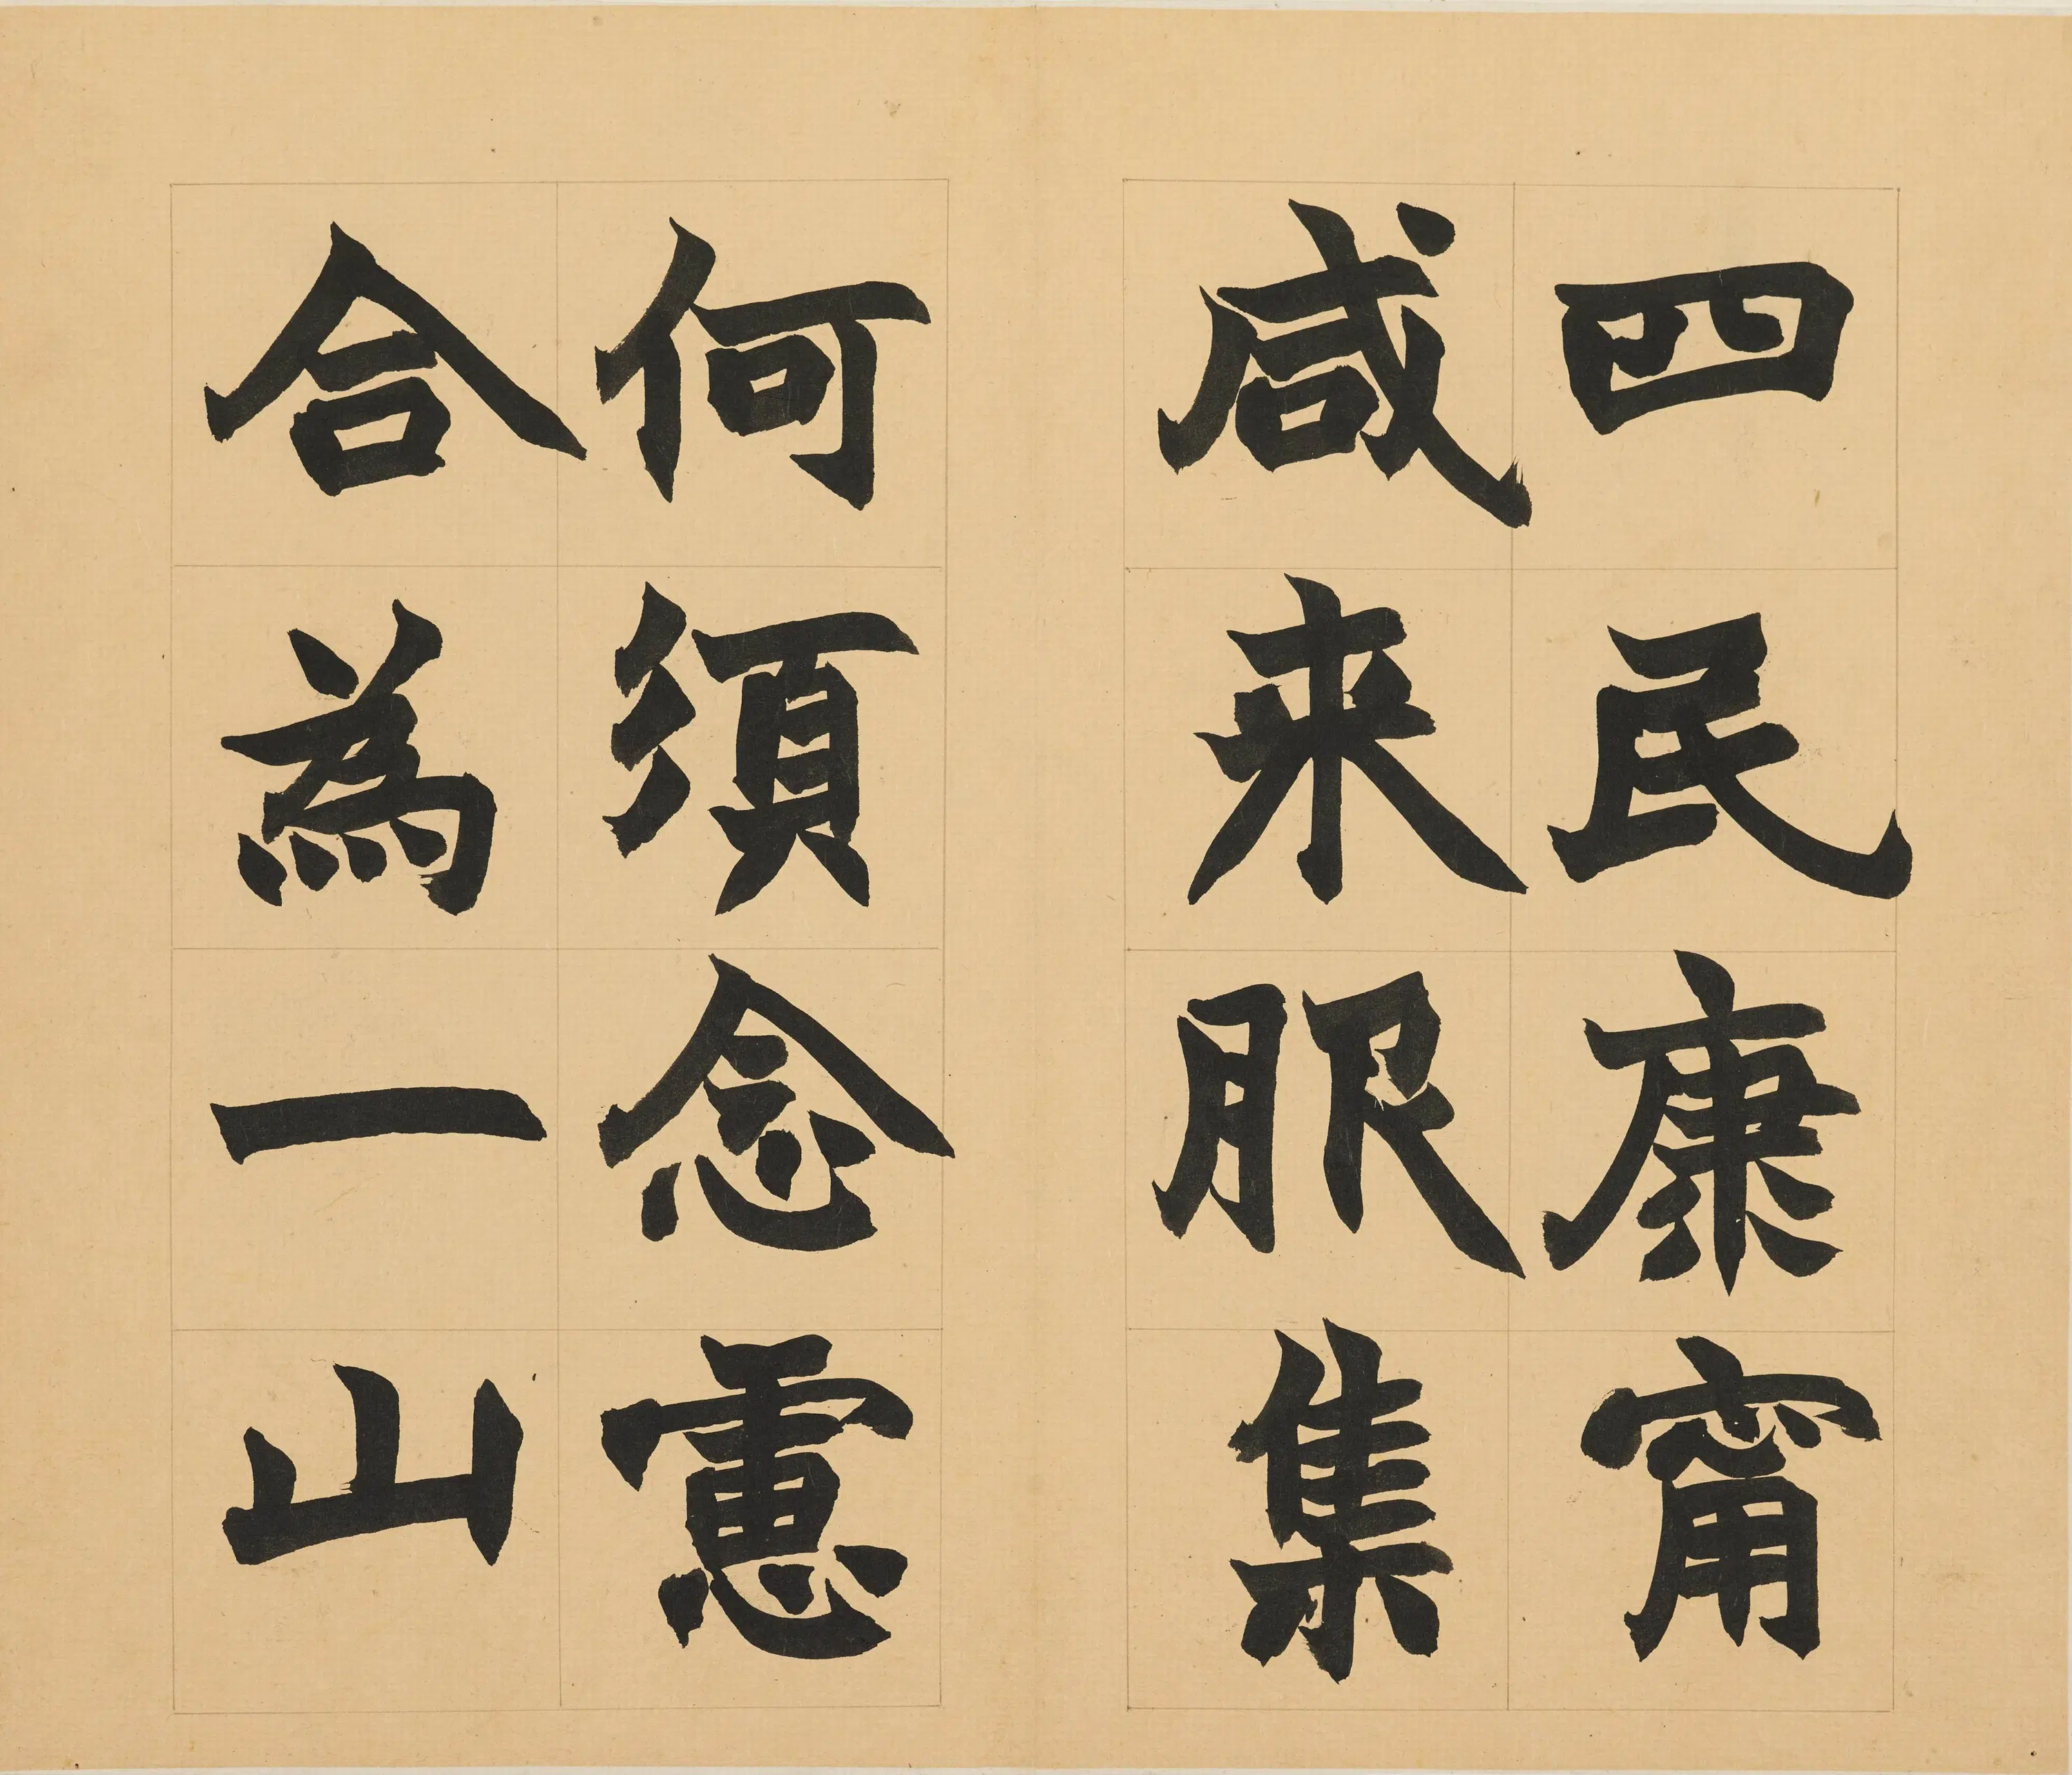 四民康甯
咸来服集
何須念慮
合為一山